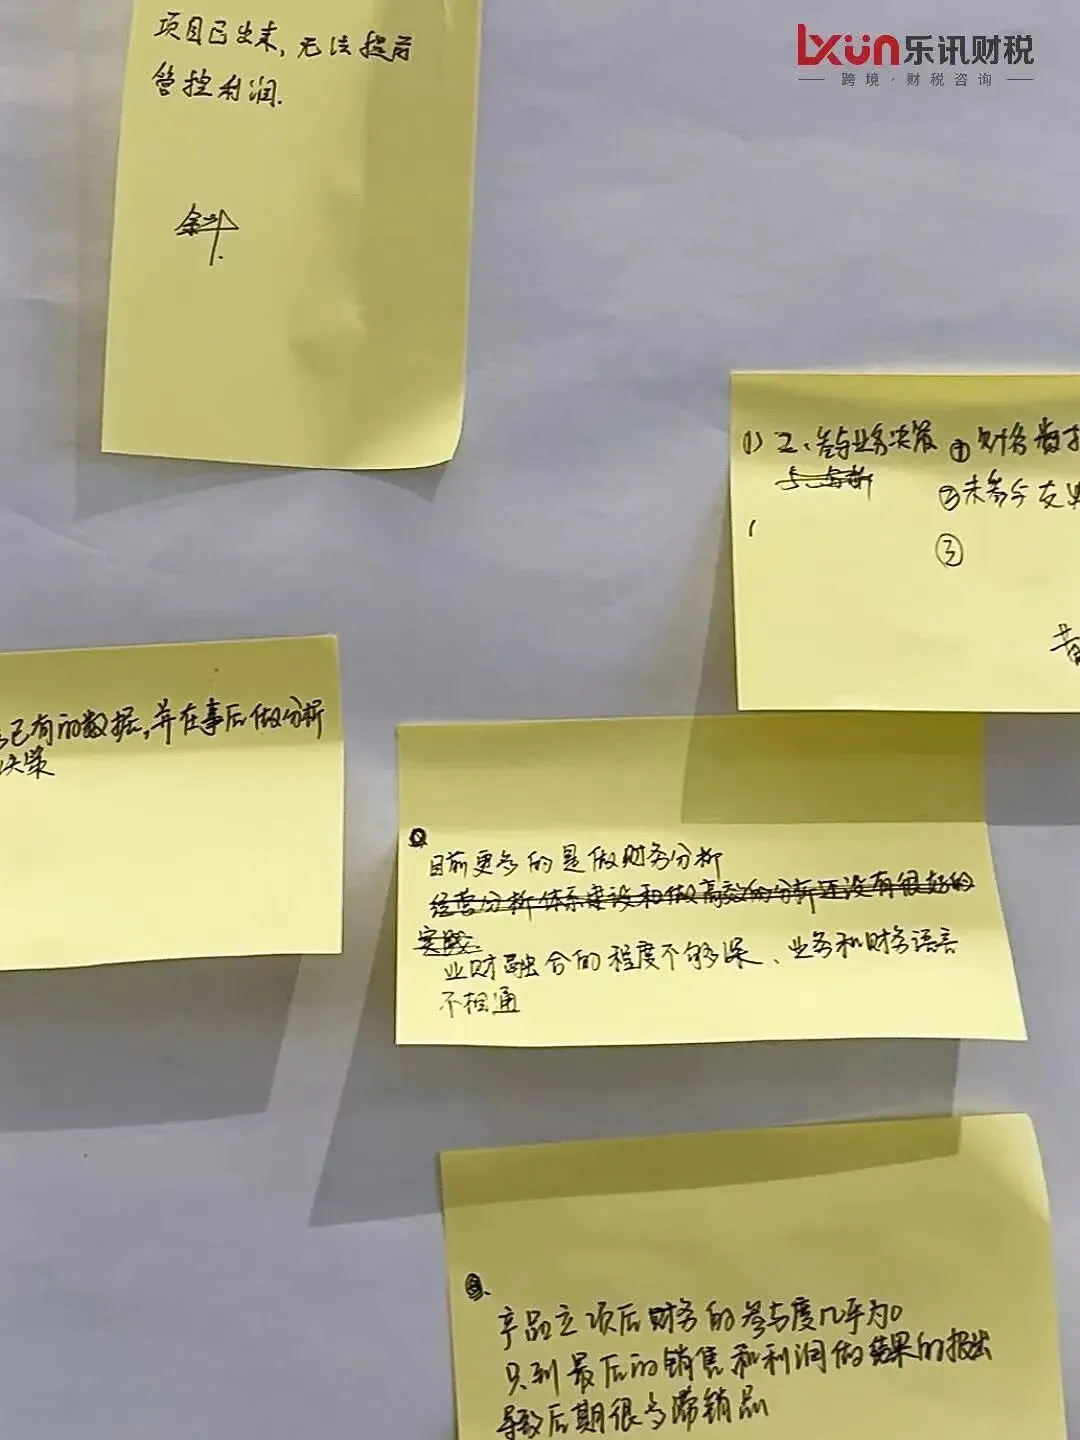 项目已出来,无法提前
管控利润.
lxun乐讯财税
跨境·财税咨询
(1) 2、参与业务决策 ① 财务数
②未参与
③
已有的数据,并在事后做分析
决策
目前更多的是做财务分析
经营分析体系建设和做高效的分析还没有很好的
实践.
业财融合的程度不够深、业务和财务语言
不相通
产品立项后财务的参与度几乎为0
只到最后的销售和利润做结果的报出
导致后期很多滞销品